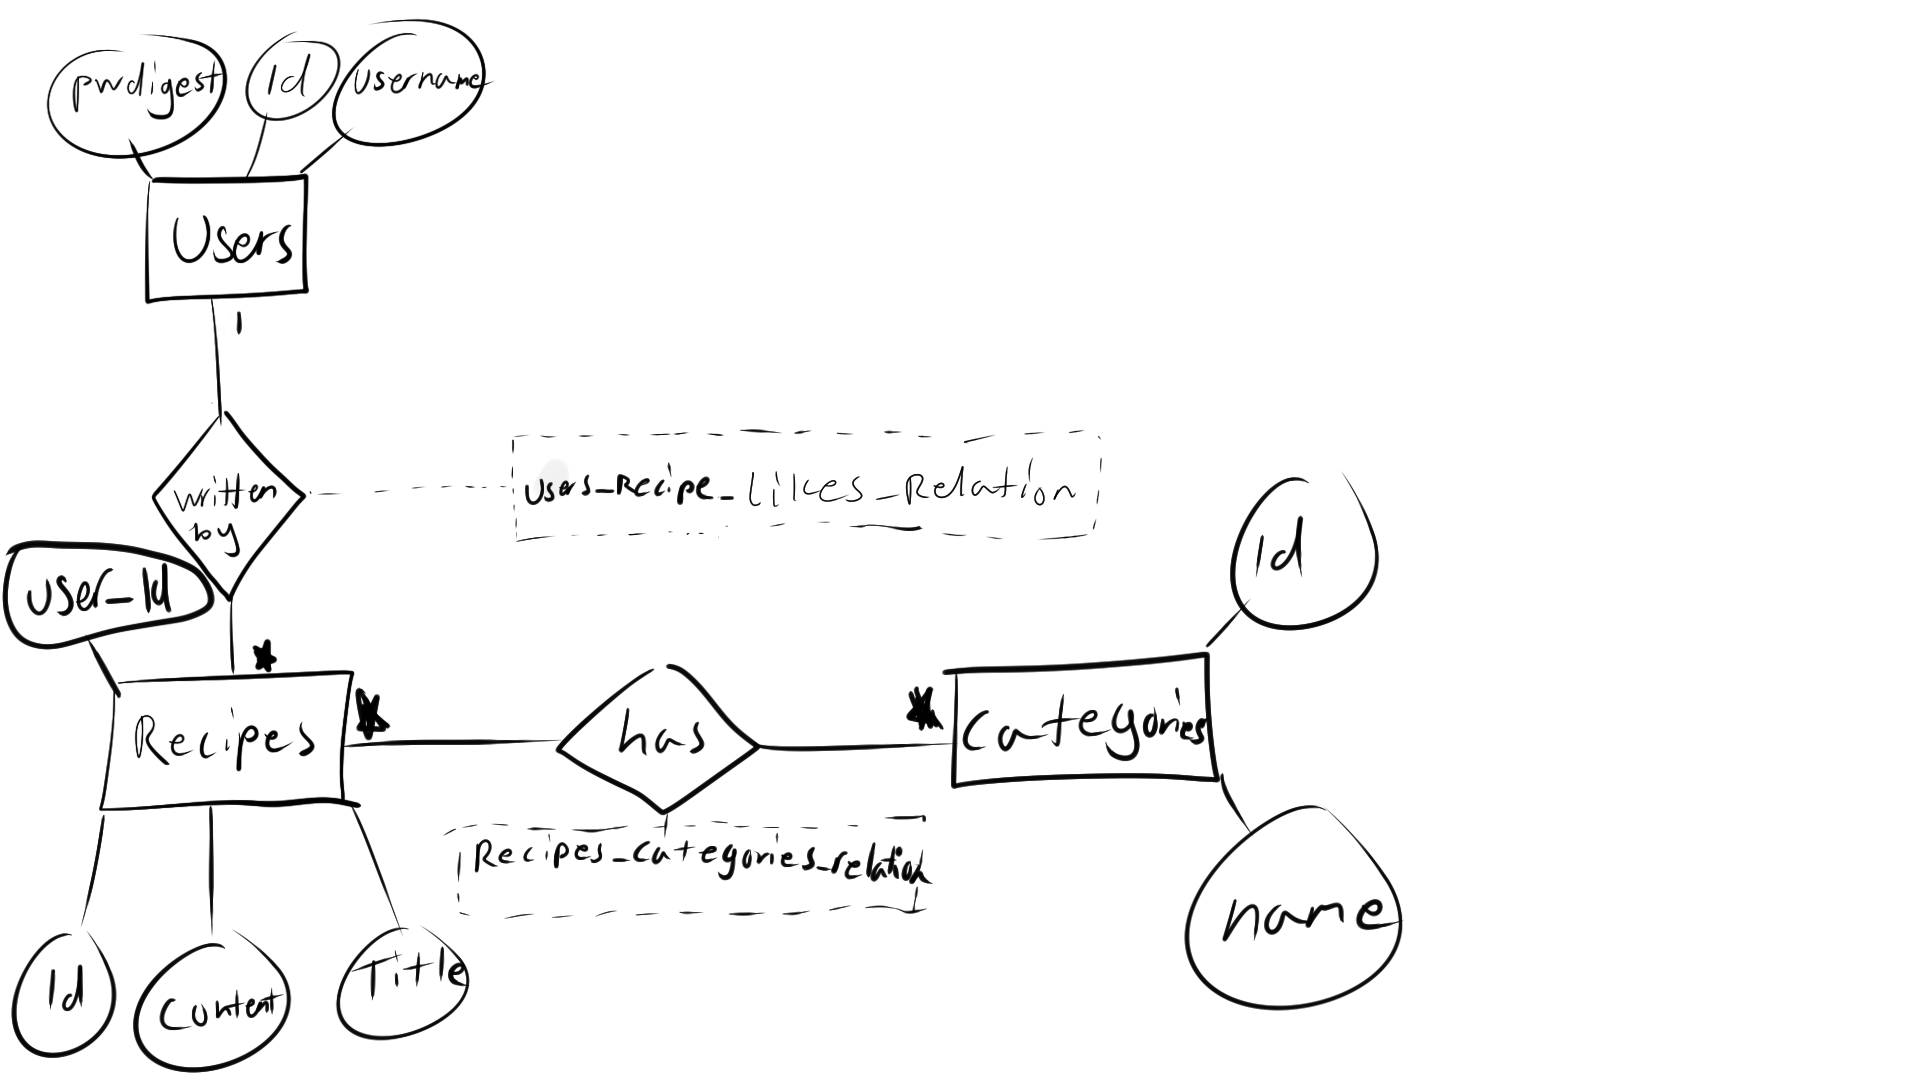 pwdigest
Id
username
Users
1
written
by
Users_Recipe_Likes_Relation
user_Id
Id
*
Recipes
*
has
*
Categories
Recipes_categories_relation
name
Id
Content
Title